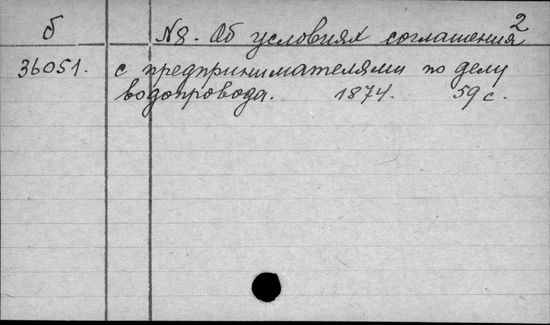 2
б N8. Об условиях соглашения
36051. с предпринимателями по делу
водопровода. 1874. 59 с.